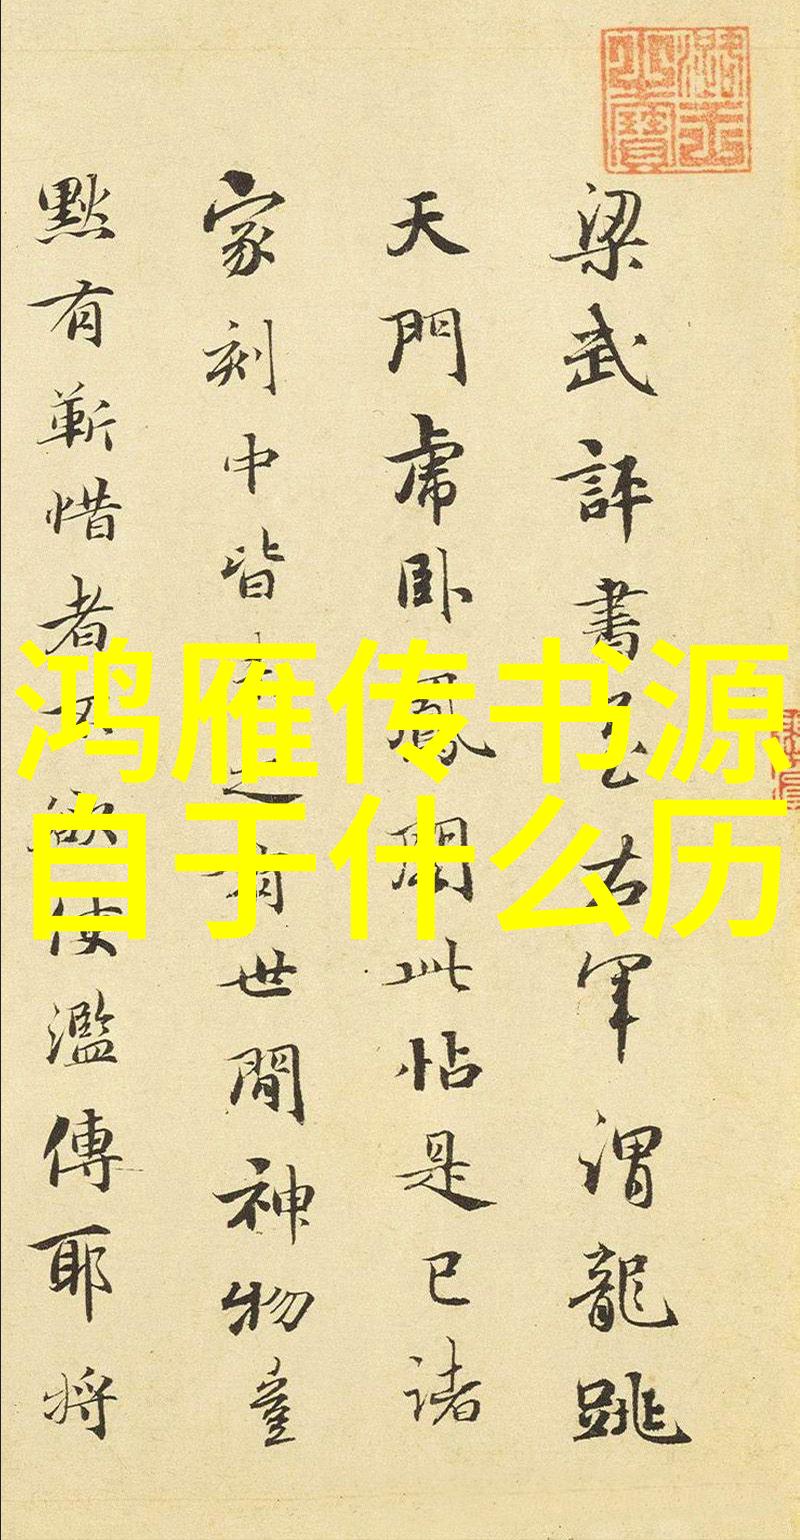 梁武評書至右軍謂龍跳
天門虎卧鳳閣此帖是已諸
家刻中皆有之世間神物豈
默有靳惜者不欲使濫傳耶將
鸿雁传书源
自于什么历